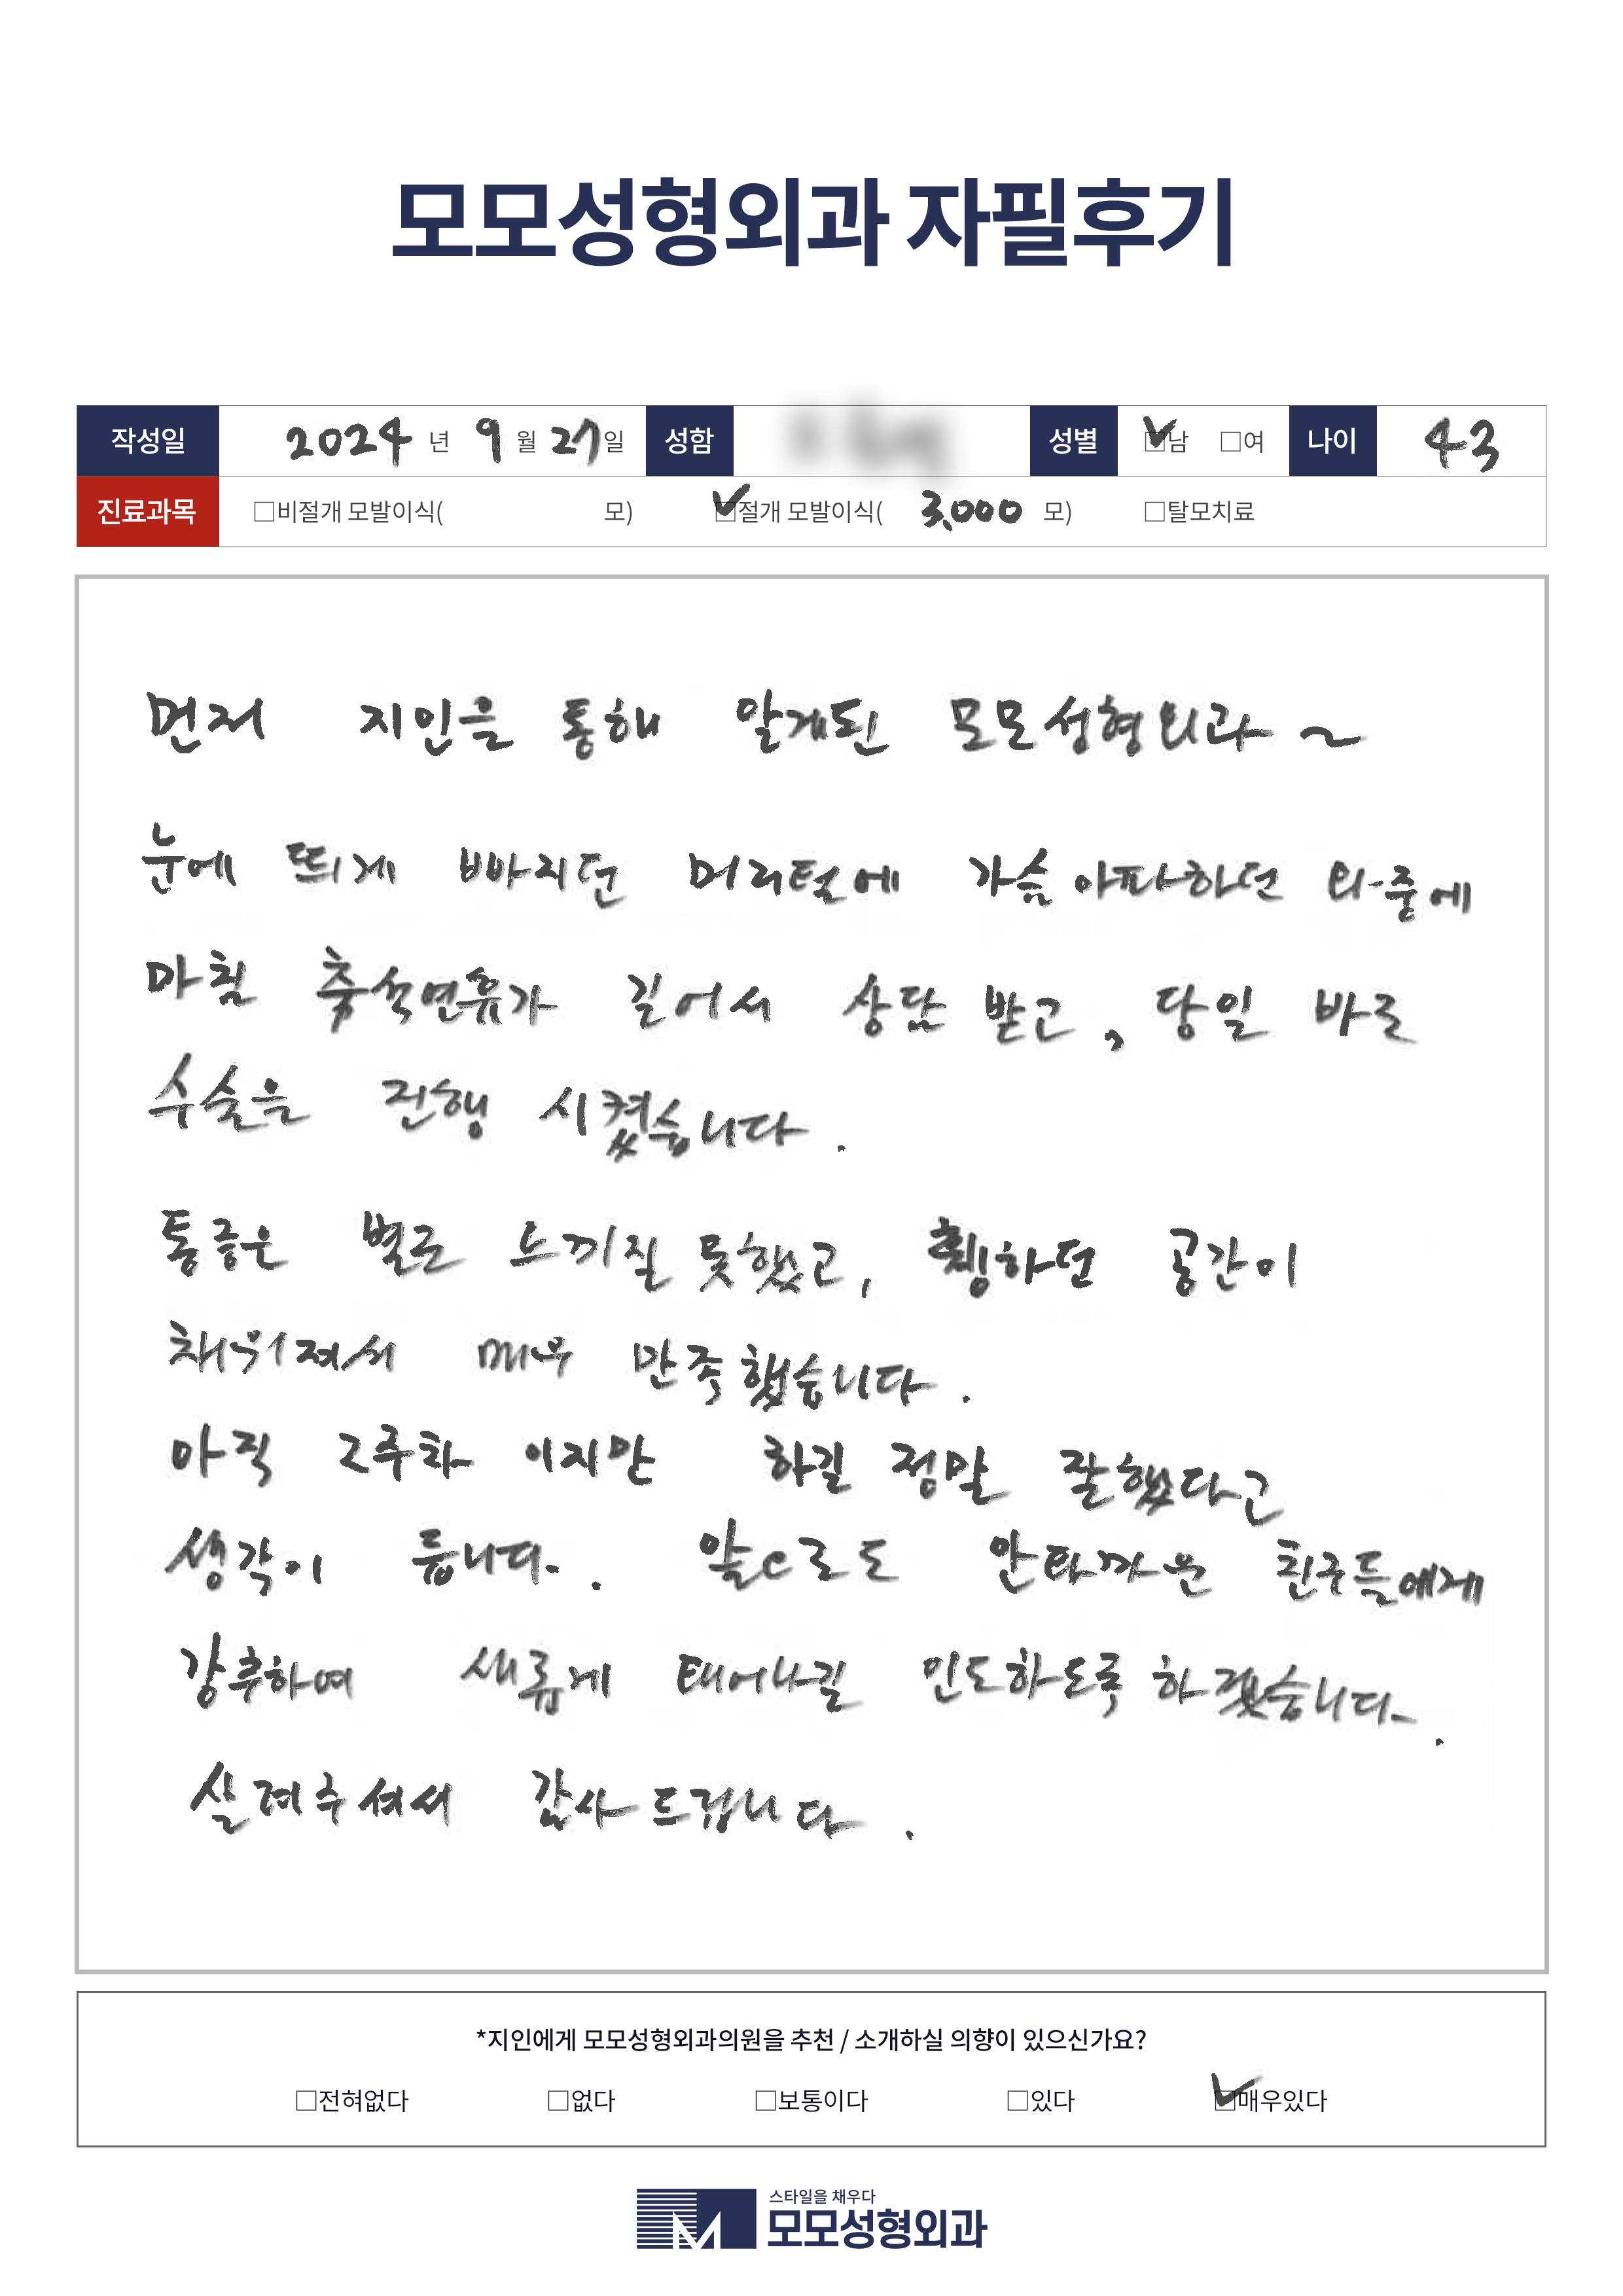 모모성형외과 자필후기
작성일 2024 년 9 월 27 일 성함 성별 ☑남 □여 나이 43
진료과목 □비절개 모발이식( 모) ☑절개 모발이식( 3,000 모) □탈모치료
먼저 지인을 통해 알게된 모모성형외과 ~
눈에 띄게 빠지던 머리털에 가슴아파하던 와중에
마침 추석연휴가 길어서 상담 받고, 당일 바로
수술을 진행 시켰습니다.
통증은 별로 느끼질 못했고, 휑하던 공간이
채워져서 매우 만족했습니다.
아직 2주차 이지만 하길 정말 잘했다고
생각이 듭니다. 앞으로도 안타까운 친구들에게
강추하여 새롭게 태어나길 인도하도록 하겠습니다.
살려주셔서 감사드립니다.
*지인에게 모모성형외과의원을 추천 / 소개하실 의향이 있으신가요?
□전혀없다 □없다 □보통이다 □있다 ☑매우있다
스타일을 채우다
모모성형외과